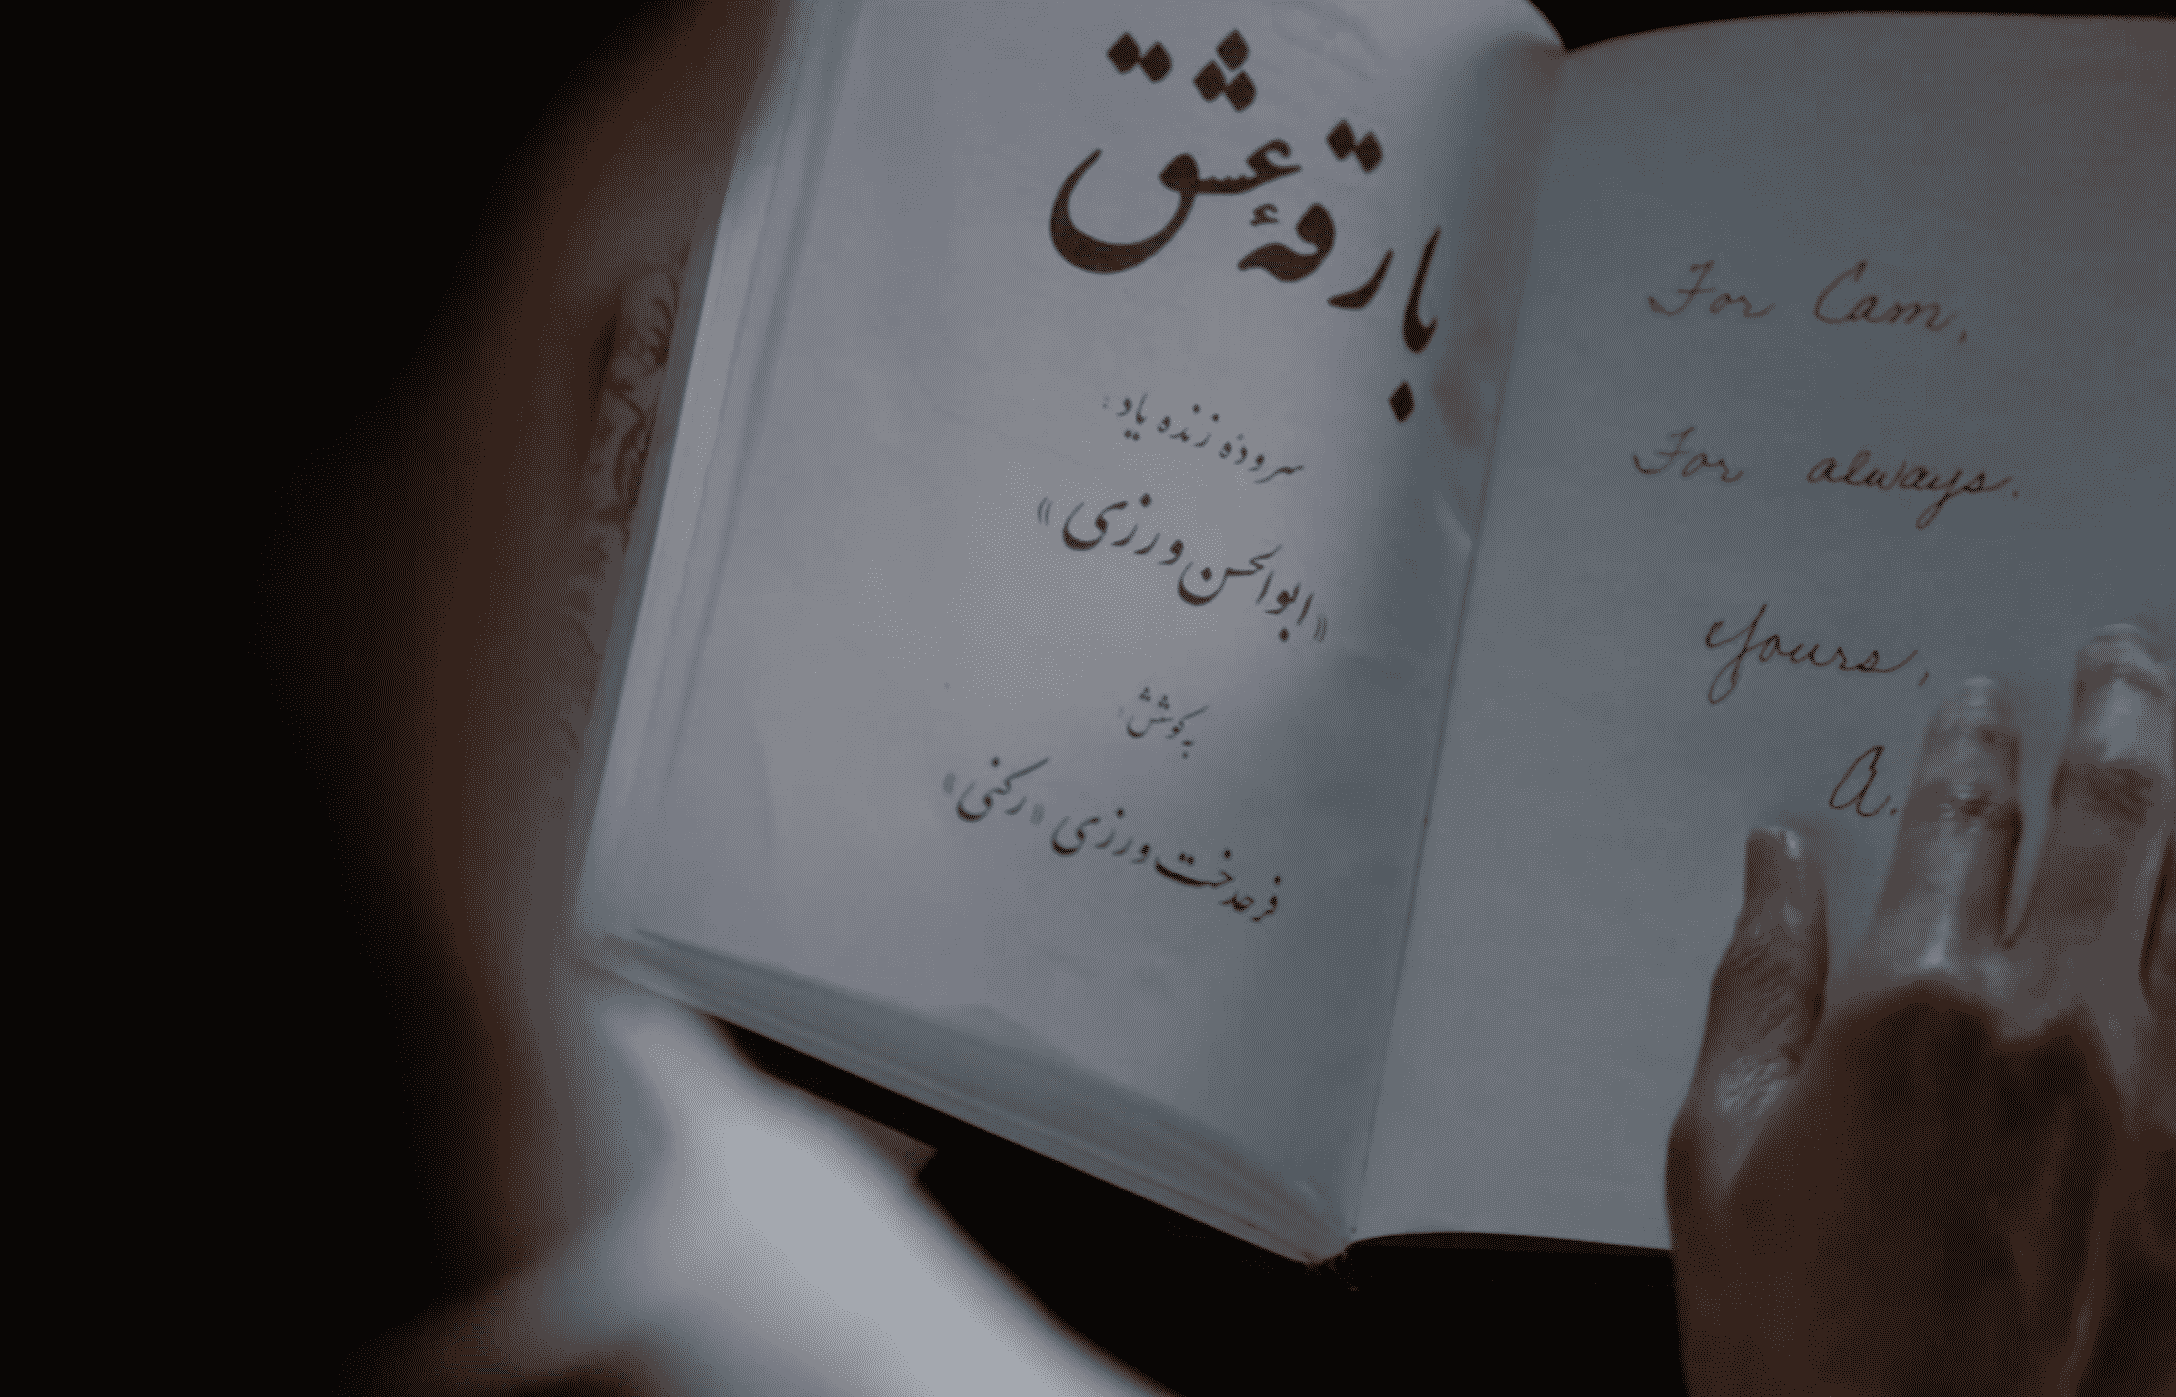 بارقهٔ عشق
سرودهٔ زنده یاد :
«ابوالحسن ورزی»
به کوشش :
فرحدخت ورزی «رکنی»
For Cam,
For always.
Yours,
A.